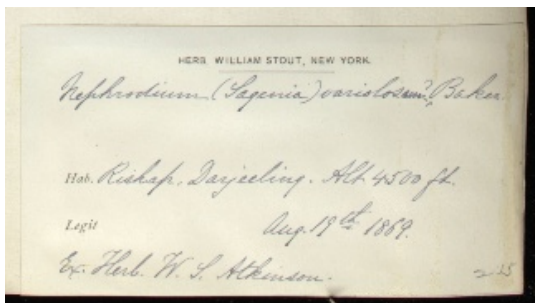 HERB. WILLIAM STOUT, NEW YORK.
Nephrodium (Sagenia) variolosum?, Baker
Hab. Riskap, Darjeeling. Alt. 4500 ft.
Legit Aug. 19th 1869.
Ex. Herb. W. S. Atkinson.